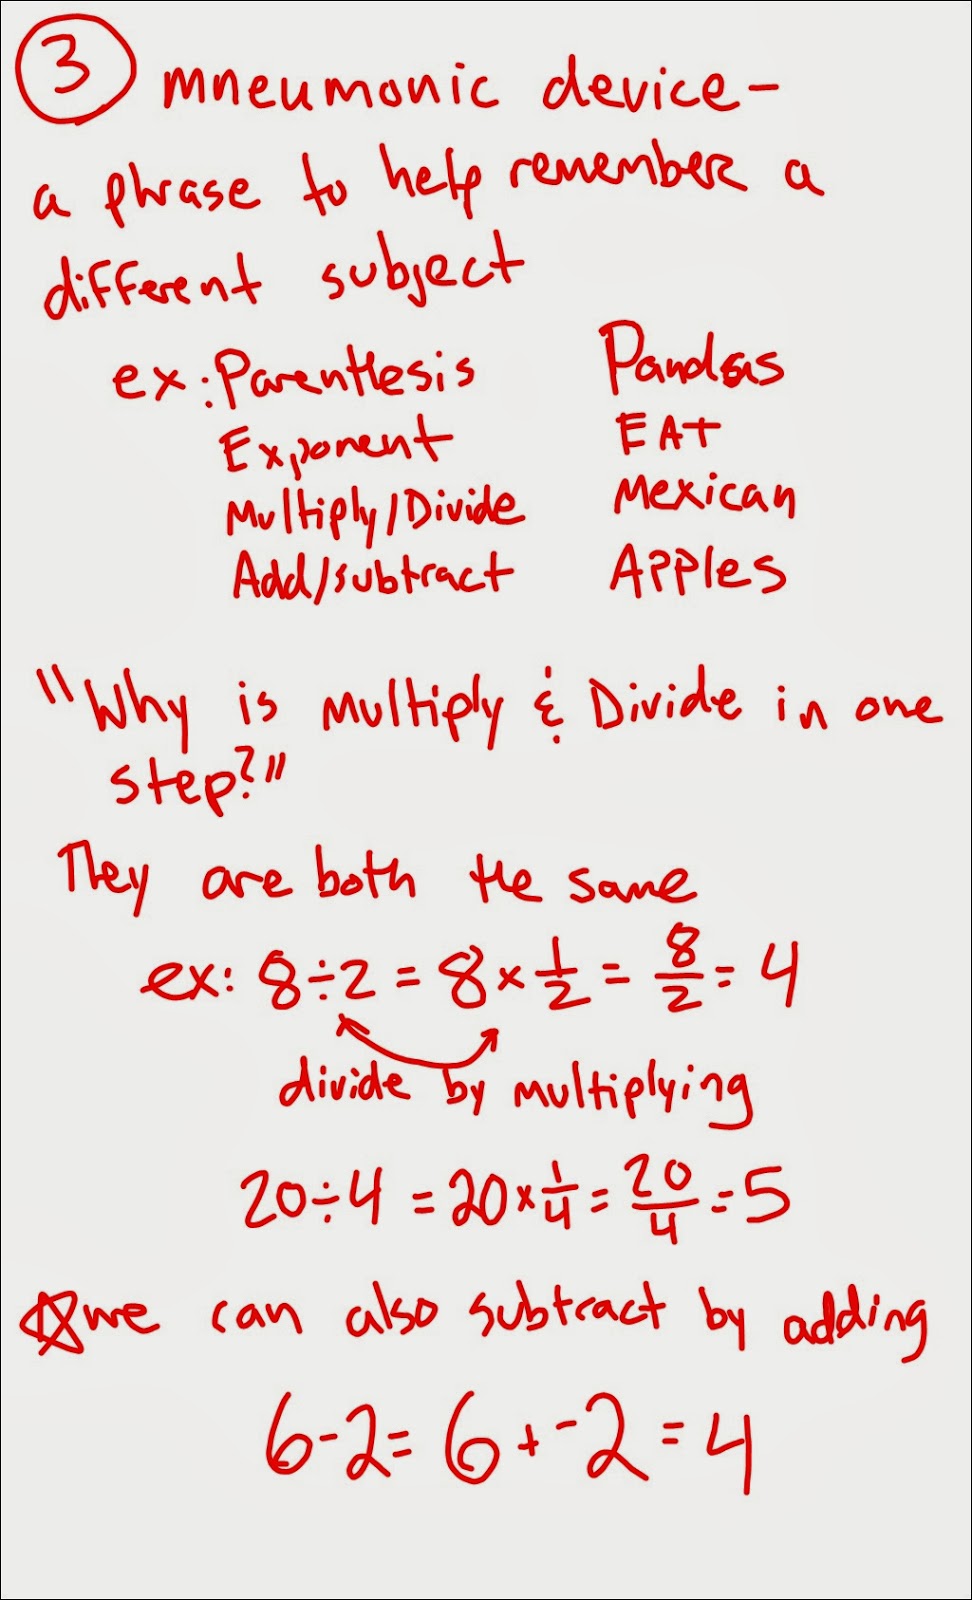 3 mneumonic device-
a phrase to help remember a
different subject
ex: Parenthesis Pandas
Exponent EAT
Multiply/Divide Mexican
Add/subtract Apples
"Why is multiply & Divide in one
step?"
They are both the same
ex: 8÷2 = 8 × 1/2 = 8/2 = 4
divide by multiplying
20÷4 = 20 × 1/4 = 20/4 = 5
☆ we can also subtract by adding
6-2 = 6 + -2 = 4